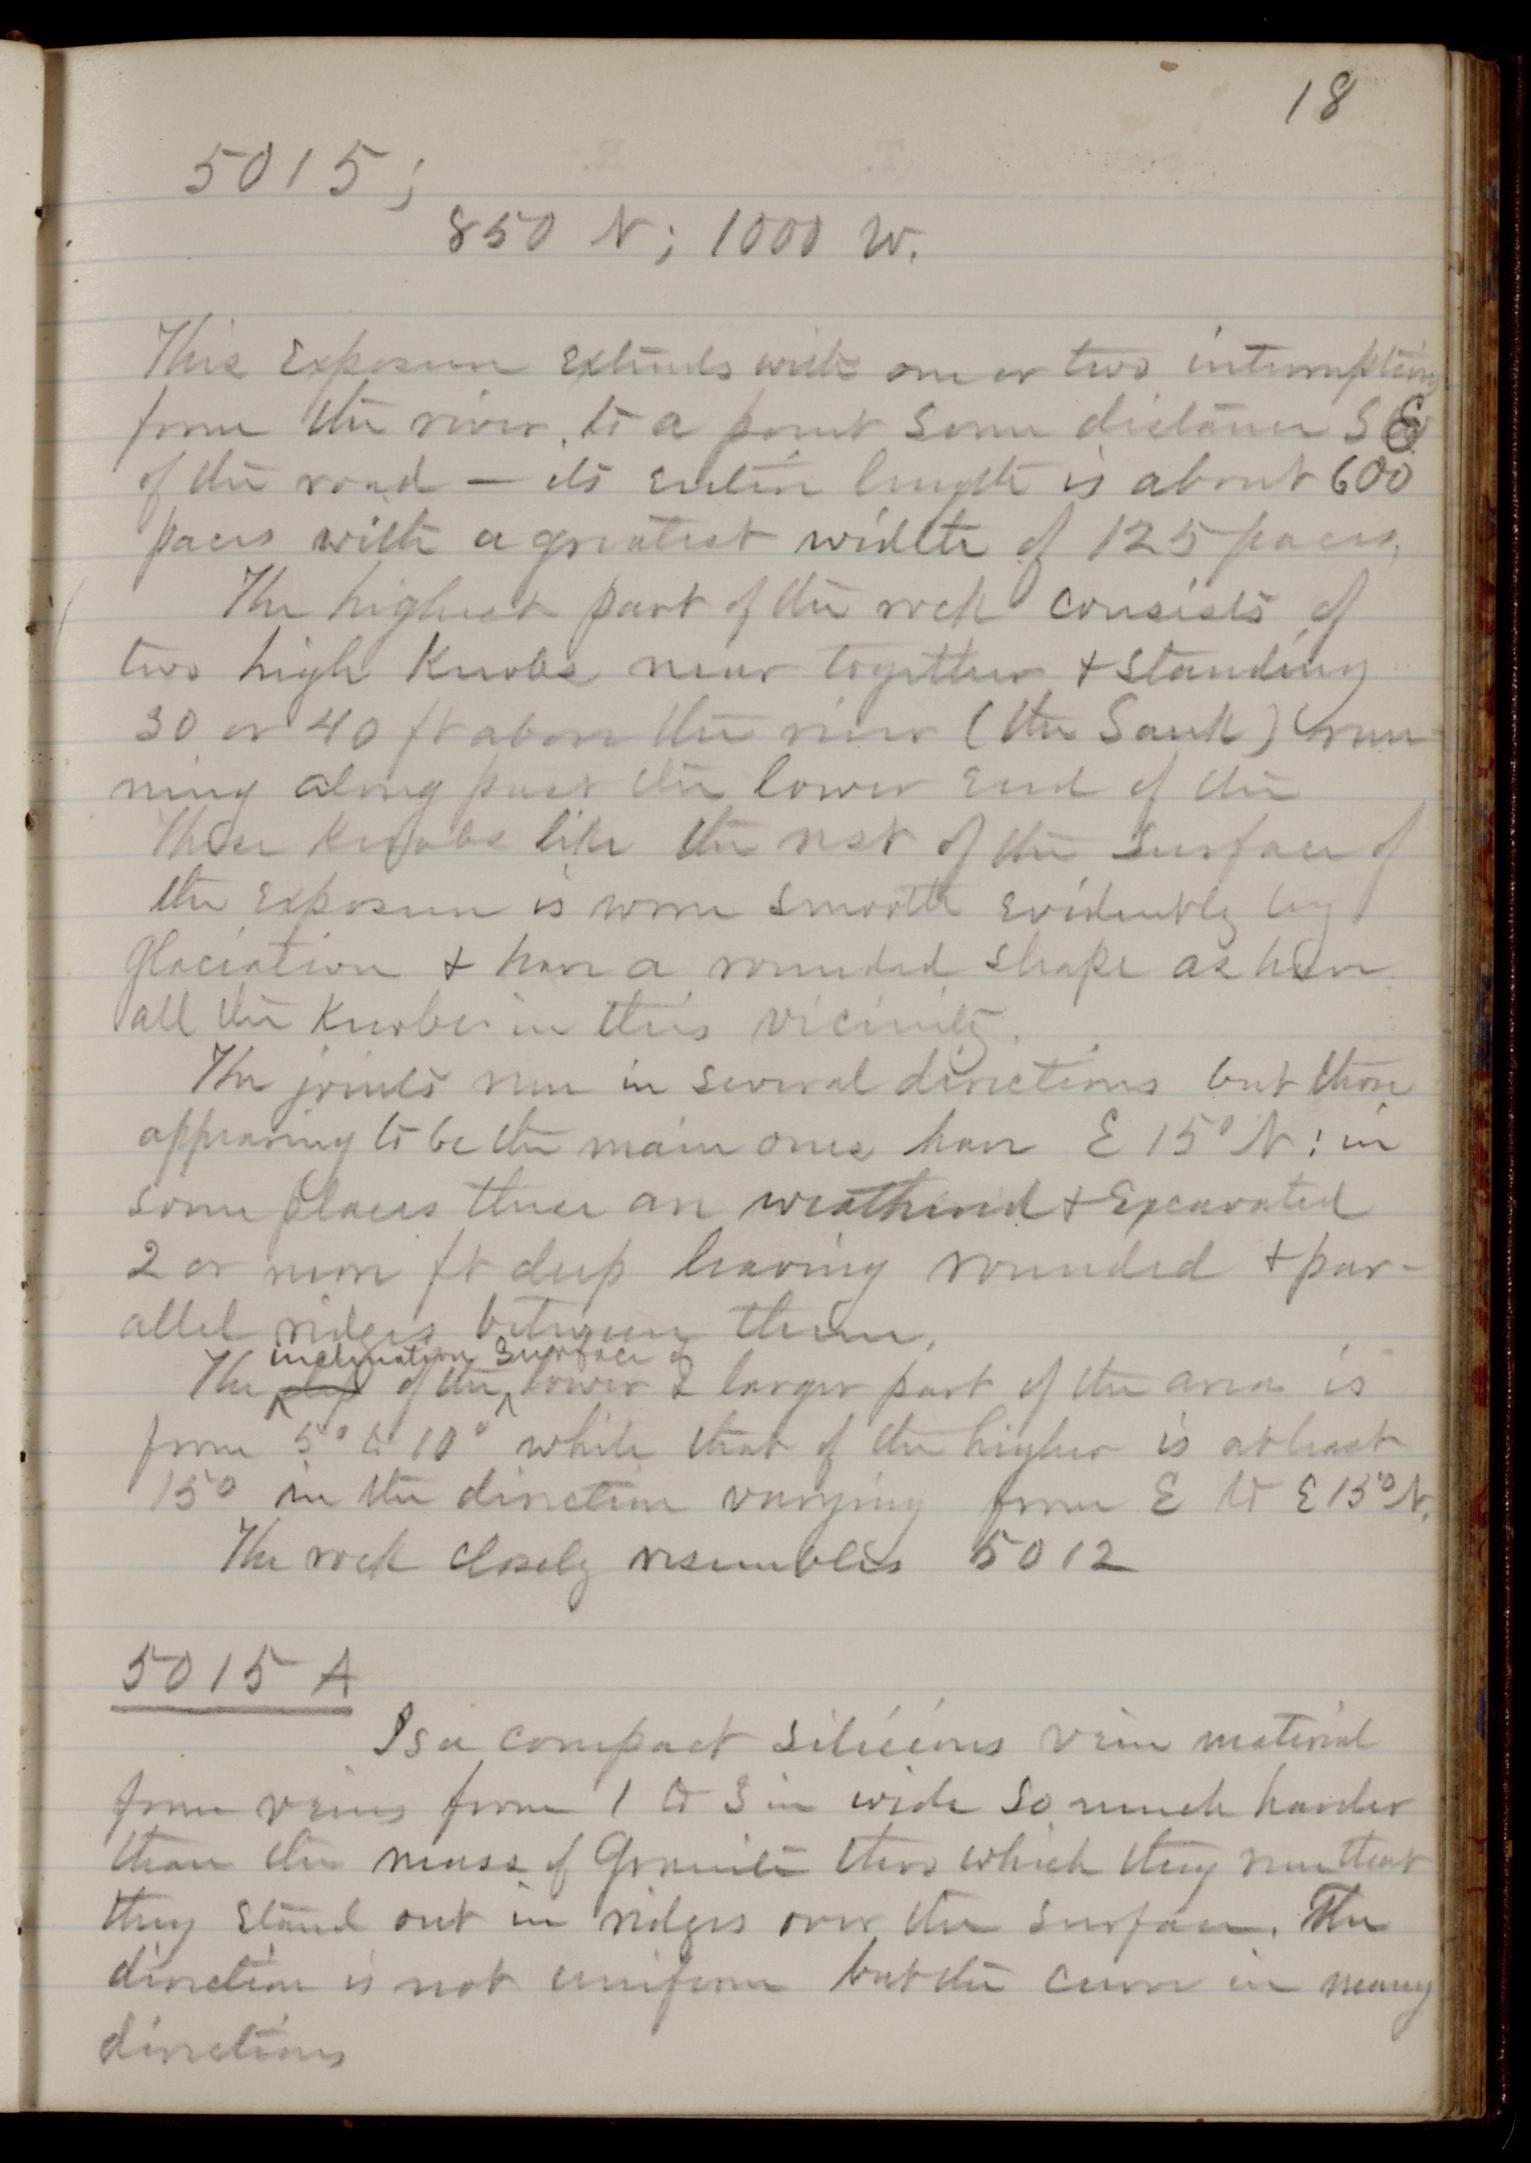 18
5015;
850 N; 1000 W.
This Exposure Extends with one or two interruptions
from the river, to a point some distance S E
of the road — its entire length is about 600
paces with a greatest width of 125 paces,
The highest part of the rock consists of
two high Knobs near together & standing
30 or 40 ft above the river (the Sauk) run
ning along past the lower end of the
These Knobs like the rest of the surface of
the Exposure is worn smooth evidently by
glaciation & have a rounded shape as have
all the Knobs in this vicinity.
The joints run in several directions but those
appearing to be the main ones have E 15° N; in
some places these are weathered & Excavated
2 or more ft deep leaving rounded & par-
allel ridges between them.
inclination surface of
The dip of the lower & larger part of the area is
from 5° to 10° while that of the higher is at least
15° in the direction varying from E to E 15° N.
The rock closely resembles 5012
5015 A
Is a compact silicious vein material
from veins from 1 to 3 in wide so much harder
than the mass of Granite thro which they run that
they stand out in ridges over the surface. The
direction is not uniform but the curve in many
directions